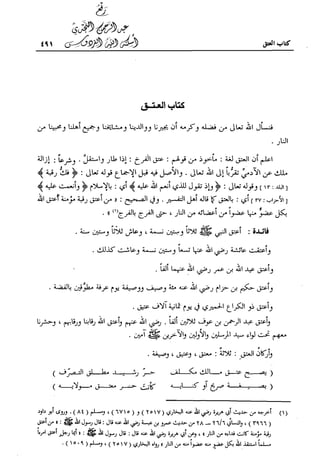 رفع
عبد الرحمن النجدي
أسكنه الله الفردوس
كتاب العتق
٤٩١
كتاب العتـق
فنسأل الله تعالى من فضله وكرمه أن يجيرنا ووالدينا ومشائخنا وجميع أهلنا ومحبينا من
النار .
اعلم أن العتق لغة : مأخوذ من قولهم : عتق الفرخ : إذا طار واستقل . وشرعاً : إزالة
ملك عن الآدمي تقرباً إلى الله تعالى . والأصل فيه قبل الإجماع قوله تعالى : ﴿ فك رقبة ﴾
[ البلد : ١٣ ] وقوله تعالى : ﴿ وإذ تقول للذي أنعم الله عليه ﴾ أي : بالإسلام ﴿ وأنعمت عليه ﴾
[ الأحزاب : ٣٧ ] أي : بالعتق كما قاله أهل التفسير . وفي الصحيح : « من أعتق رقبة مؤمنة أعتق الله
بكل عضو منها عضواً من أعضائه من النار ، حتى الفرج بالفرج » (١) .
فائدة : أعتق النبي ﷺ ثلاثاً وستين نسمة ، وعاش ثلاثاً وستين سنة .
وأعتقت عائشة رضي الله عنها تسعاً وستين نسمة وعاشت كذلك .
وأعتق عبد الله بن عمر رضي الله عنهما ألفاً .
وأعتق حكيم بن حزام رضي الله عنه مئة وصيف ووصيفة يوم عرفة مطوقين بالفضة .
وأعتق ذو الكراع الحميري في يوم ثمانية آلاف عتيق .
وأعتق عبد الرحمن بن عوف ثلاثين ألفاً . رضي الله عنهم وأعتق الله رقابنا ورقابهم ، وحشرنا
معهم تحت لواء سيد المرسلين والأولين والآخرين ﷺ آمين .
وأركان العتق : ثلاثة : معتق ، وعتيق ، وصيغة .
( يصـح عتـق مـالك مكلـف حـر رشيـد مطلـق التصرف )
( بصيغـة صريح أو كنـايـه كأنت حـر معتـق مولايـه )
(١) أخرجه من حديث أبي هريرة رضي الله عنه البخاري ( ٢٥١٧ ) و ( ٦٧١٥ ) ، ومسلم ( ٨٤ ) . وروى أبو داود
( ٣٩٦٦ ) ، والنسائي ٢٦/٦ ـ ٢٨ من حديث عمرو بن عبسة رضي الله عنه قال : قال رسول الله ﷺ : « من أعتق
رقبة مؤمنة كانت فداءه من النار » ، وعن أبي هريرة رضي الله عنه قال : قال رسول الله ﷺ : « أيما رجل أعتق امرأً
مسلماً استنقذ الله بكل عضو منه عضواً منه من النار » رواه البخاري ( ٢٥١٧ ) ، ومسلم ( ١٥٠٩ ) .